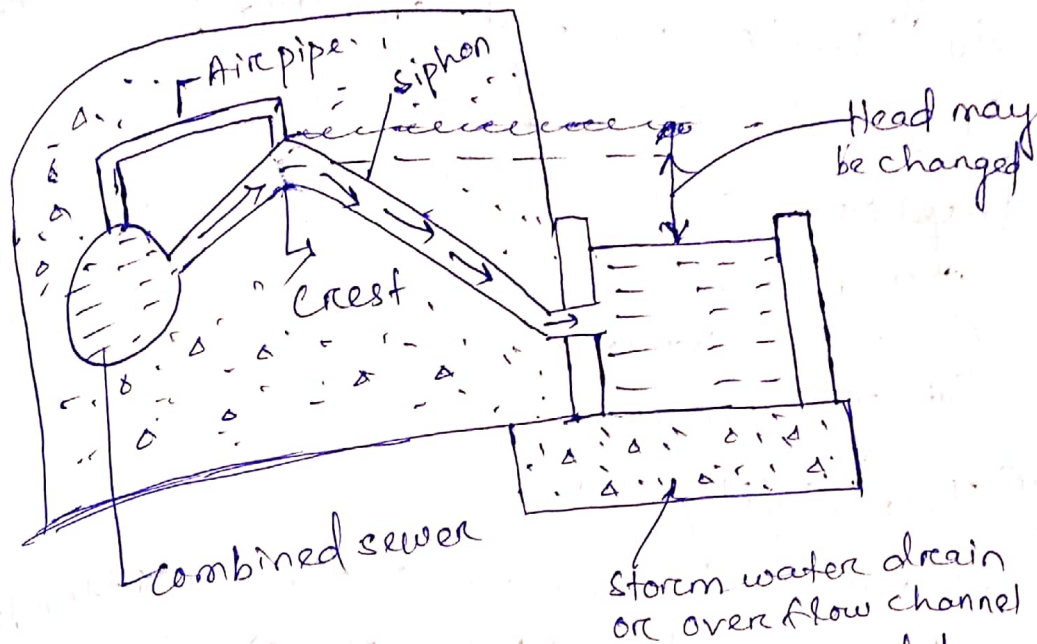 Air pipe
siphon
Head may
be changed
Crest
Combined sewer
Storm water drain
or over flow channel